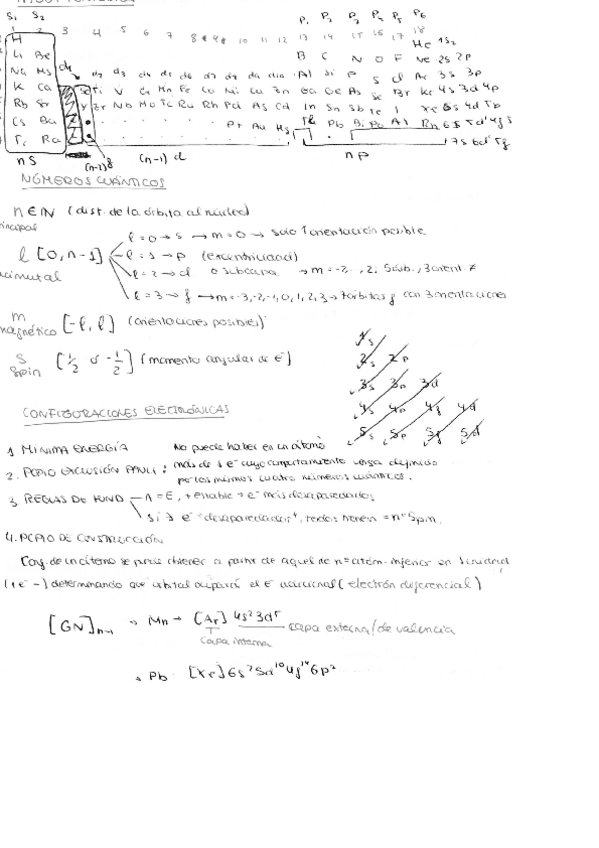 S₁ S₂ P₁ P₂ P₃ P₄ P₅ P₆
1 2 3 4 5 6 7 8 9 10 11 12 13 14 15 16 17 18
H He 1s₂
Li Be B C N O F Ne 2s 2p
Na Mg d₁ d₂ d₃ d₄ d₅ d₆ d₇ d₈ d₉ d₁₀ Al Si P S Cl Ar 3s 3p
K Ca Sc Ti V Cr Mn Fe Co Ni Cu Zn Ga Ge As Se Br Kr 4s 3d 4p
Rb Sr Y Zr Nb Mo Tc Ru Rh Pd Ag Cd In Sn Sb Te I Xe 5s 4d 5p
Cs Ba Pt Au Hg Tl Pb Bi Po At Rn 6s 5d 4f
Ra 7s 6d 5f
nS (n-2)f (n-1) d n p
NÚMEROS CUÁNTICOS
n∈N (dist. de la órbita al núcleo)
principal
l=0→s →m=0→ solo 1 orientación posible
l [0,n-1] l=1→p (excentricidad)
azimutal l=2→d o subcapa →m=-2,
l=3→f →m=-3,-2,-1,0,1,2,3→ 7 órbitas f con orientaciones
m
magnético [-l, l] (orientaciones posibles)
s
spin [1/2 ó -1/2] (momento angular de e⁻)
1s
2s 2p
3s 3p 3d
4s 4p 4f 4d
5s 5p 5f 5d
CONFIGURACIONES ELECTRÓNICAS
1 MÍNIMA ENERGÍA
No puede haber en un átomo
2. PCPIO EXCLUSIÓN PAULI : más de 1 e⁻ cuyo comportamiento venga definido
por los mismos cuatro números cuánticos.
3 REGLAS DE HUND n=E, + estable → e⁻ más desapareados
si ∃ e⁻ "desapareados", todos tienen = nº spin.
4. PCPIO DE CONSTRUCCIÓN
Conf. de un átomo se puede obtener a partir de aquel de nº atóm. inferior en 1 unidad
(1 e⁻ -) determinando que orbital ocupará el e⁻ adicional (electrón diferencial)
[GN]n-1 → Mn → [Ar] 4s²3d⁵ capa externa/de valencia
capa interna
→ Pb [Xe] 6s²5d¹⁰4f¹⁴6p²